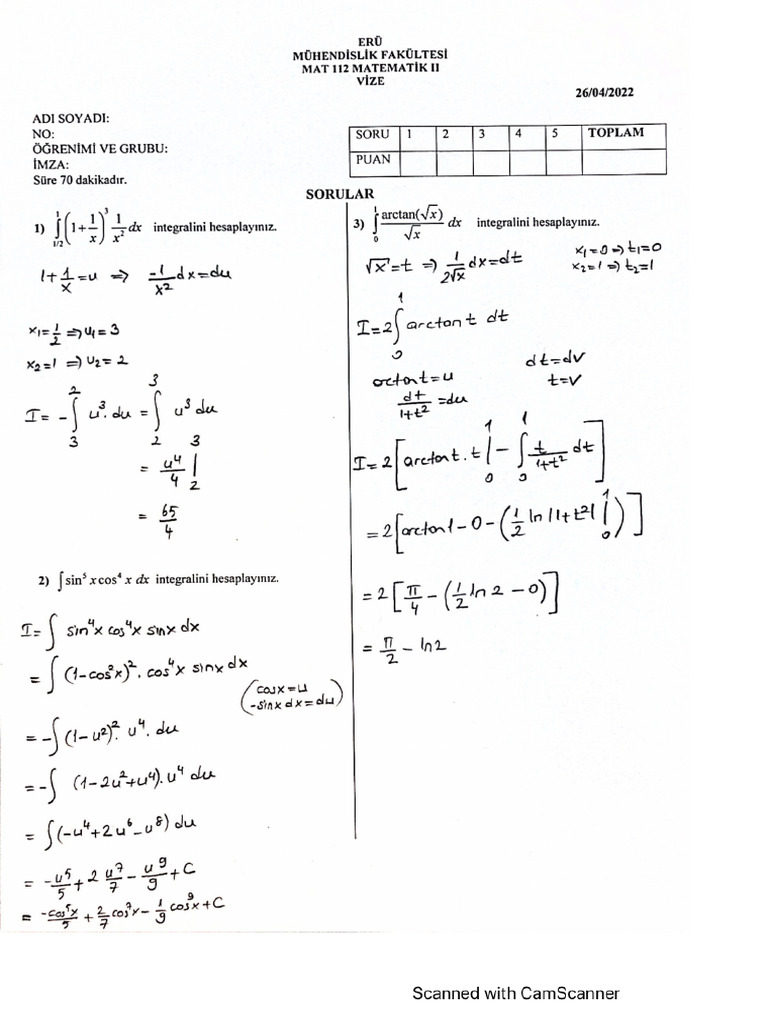 ERÜ
MÜHENDİSLİK FAKÜLTESİ
MAT 112 MATEMATİK II
VİZE
26/04/2022
ADI SOYADI:
NO:
ÖĞRENİMİ VE GRUBU:
İMZA:
Süre 70 dakikadır.
SORU 1 2 3 4 5 TOPLAM
PUAN
SORULAR
1) ∫_{1/2}^{1} (1+1/x)^3 1/x^2 dx integralini hesaplayınız.
1+1/x=u ⇒ -1/x^2 dx=du
x1=1/2 ⇒ u1=3
x2=1 ⇒ u2=2
I= -∫_{3}^{2} u^3.du = ∫_{2}^{3} u^3 du
= u^4/4 |_{2}^{3}
= 65/4
2) ∫ sin^5 x cos^4 x dx integralini hesaplayınız.
I= ∫ sin^4x cos^4x sinx dx
= ∫ (1-cos^2x)^2. cos^4x sinx dx
(cosx=u
-sinx dx=du)
= -∫ (1-u^2)^2. u^4. du
= -∫ (1-2u^2+u^4). u^4 du
= ∫(-u^4+2u^6-u^8) du
= -u^5/5 + 2 u^7/7 - u^9/9 + C
= -cos^5x/5 + 2/7 cos^7x - 1/9 cos^9x + C
3) ∫_{0}^{1} arctan(√x)/√x dx integralini hesaplayınız.
√x=t ⇒ 1/2√x dx=dt
x1=0 ⇒ t1=0
x2=1 ⇒ t2=1
I=2∫_{0}^{1} arctan t dt
arctan t=u dt=dv
dt/1+t^2 =du t=v
I=2[arctan t. t |_{0}^{1} - ∫_{0}^{1} t/1+t^2 dt]
=2[arctan1-0-(1/2 ln|1+t^2| |_{0}^{1})]
=2[π/4 - (1/2 ln2 - 0)]
= π/2 - ln2
Scanned with CamScanner